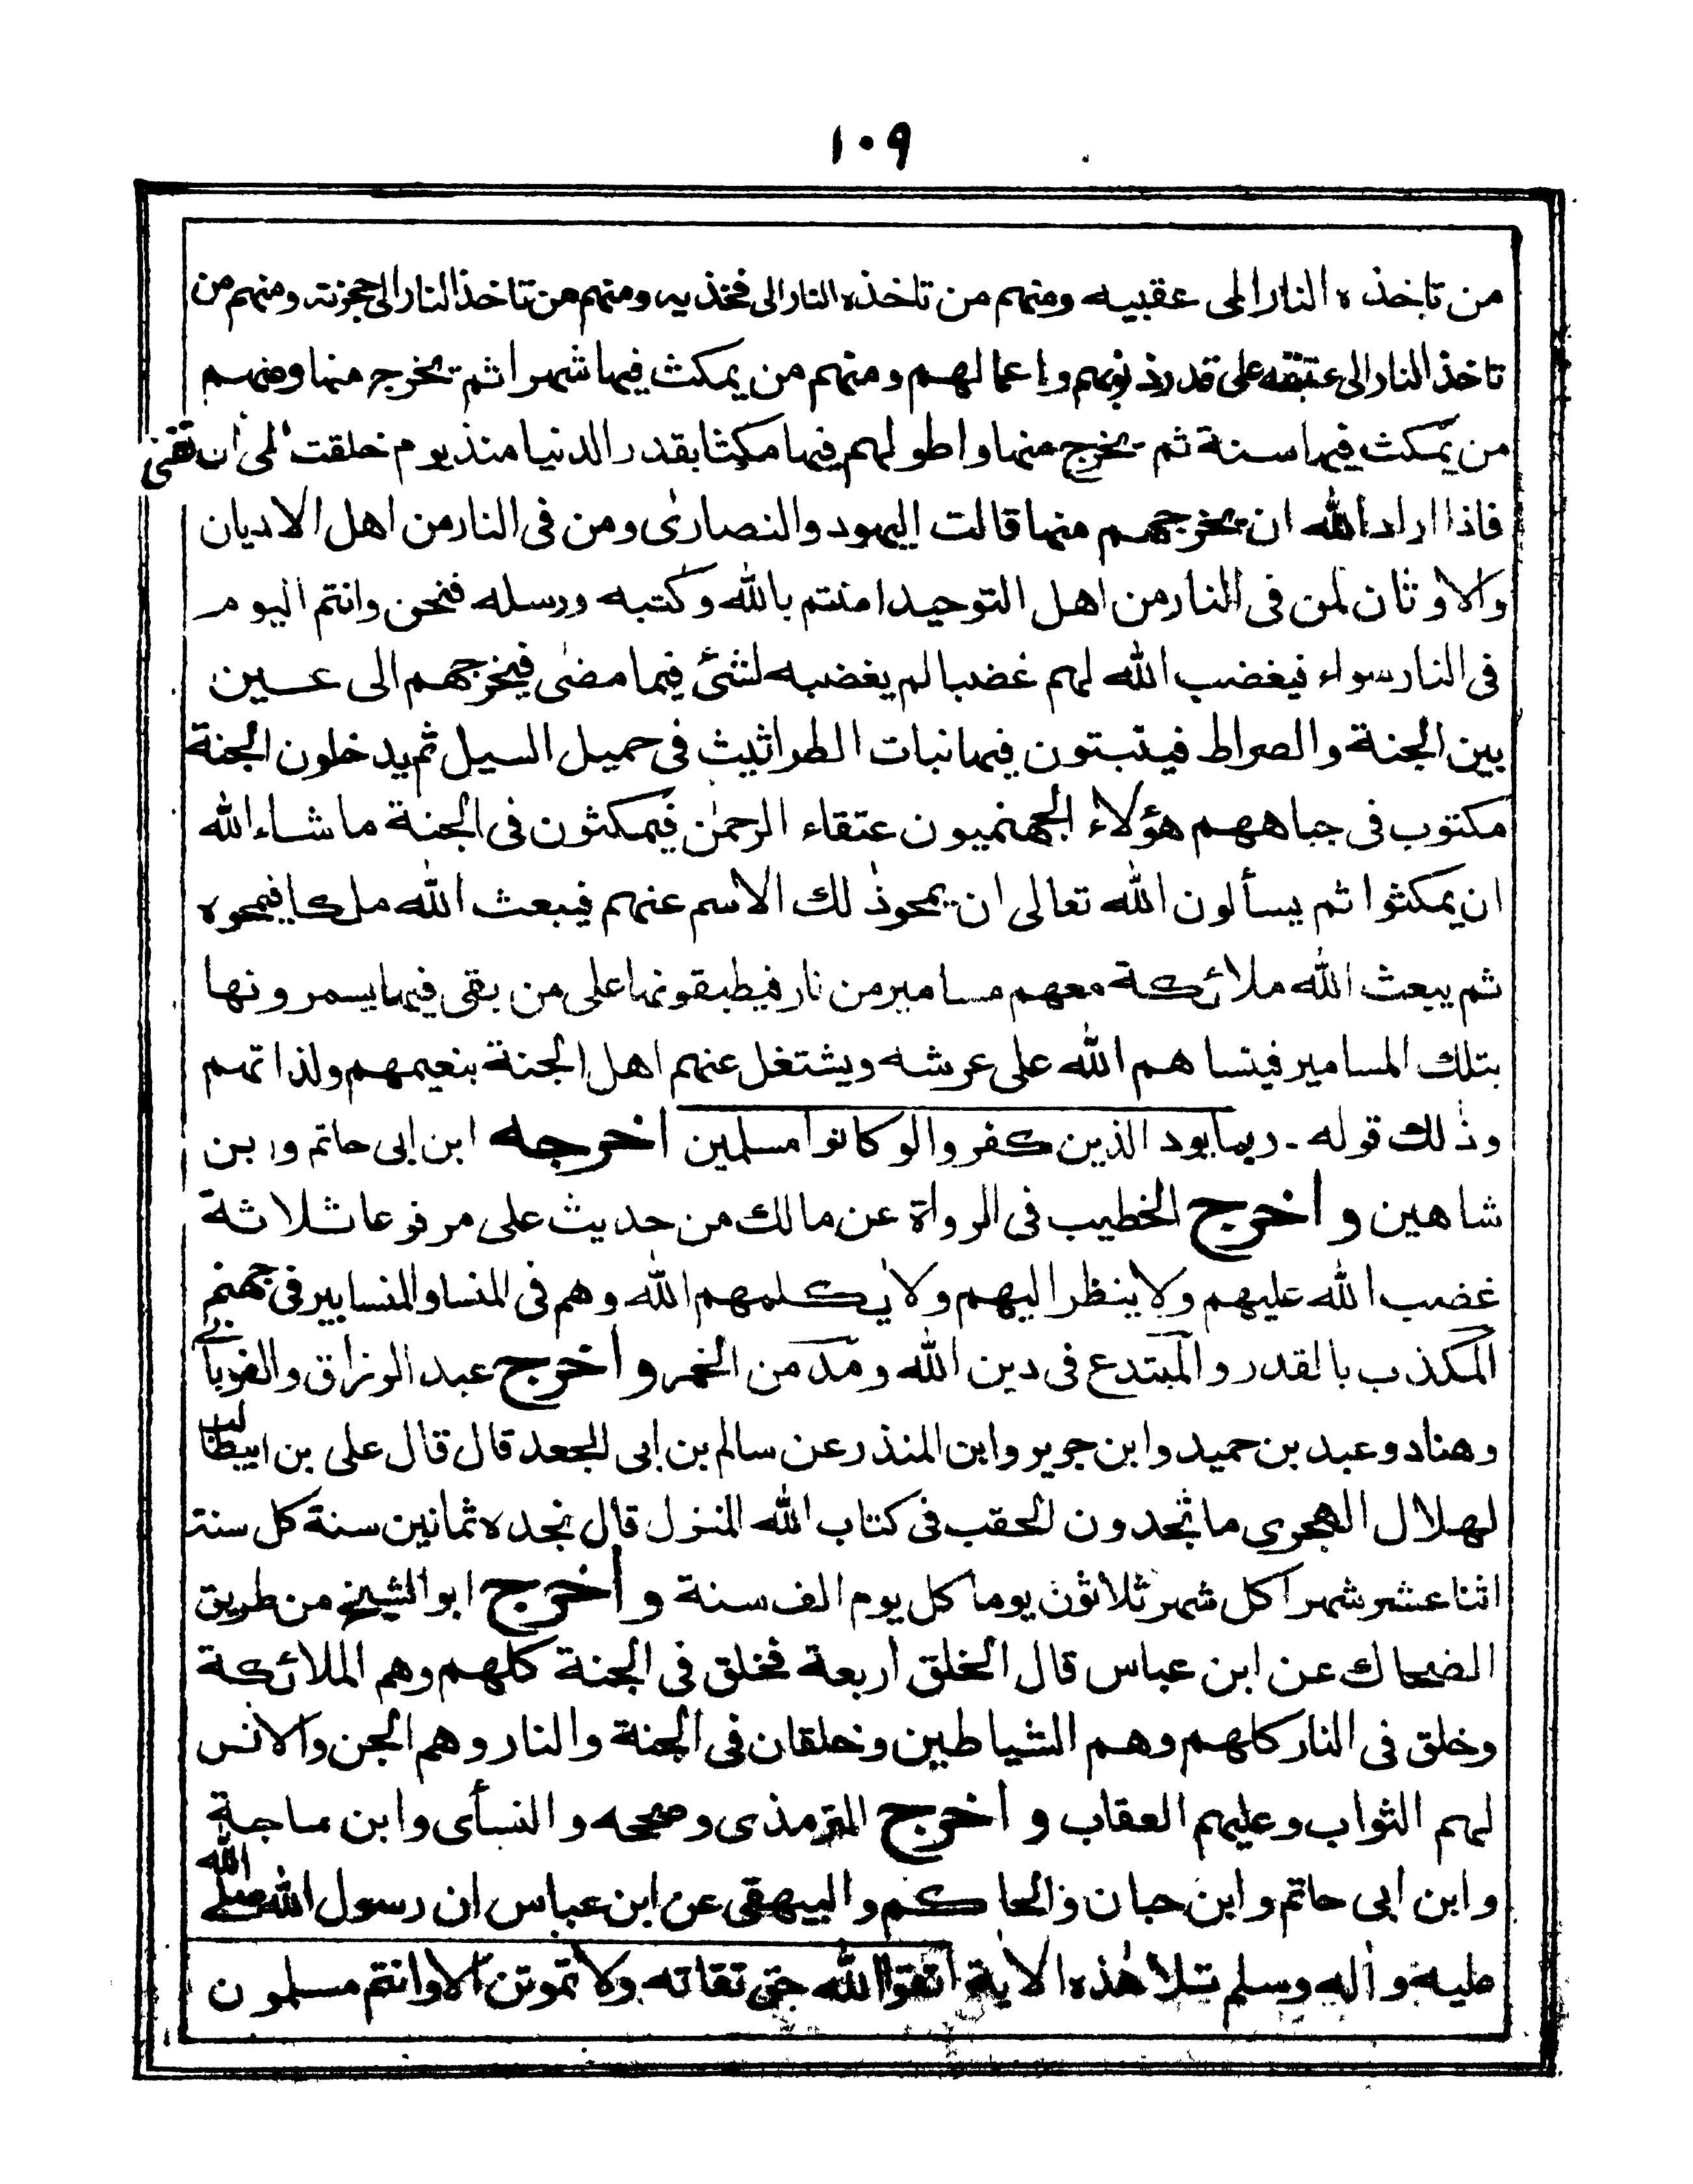 ١٠٩
من تاخذه النار الى عقبيه ومنهم من تاخذه النار الى فخذيه ومنهم من تاخذ النار الى حجزته ومنهم من
تاخذ النار الى عنقه على قدر ذنوبهم واعمالهم ومنهم من يمكث فيها شهرا ثم يخرج منها ومنهم
من يمكث فيها سنة ثم يخرج منها واطولهم فيها مكثا بقدر الدنيا منذ يوم خلقت الى ان تفنى
فاذا اراد الله ان يخرجهم منها قالت اليهود والنصارى ومن فى النار من اهل الاديان
والاوثان لمن فى النار من اهل التوحيد امنتم بالله وكتبه ورسله فنحن وانتم اليوم
فى النار سواء فيغضب الله لهم غضبا لم يغضبه لشئ فيما مضى فيخرجهم الى عين
بين الجنة والصراط فينبتون فيها نبات الطراثيث فى حميل السيل ثم يدخلون الجنة
مكتوب فى جباههم هؤلاء الجهنميون عتقاء الرحمن فيمكثون فى الجنة ما شاء الله
ان يمكثوا ثم يسألون الله تعالى ان يمحو ذلك الاسم عنهم فيبعث الله ملكا فيمحوه
ثم يبعث الله ملائكة معهم مسامير من نار فيطبقونها على من بقى فيها يسمرونها
بتلك المسامير فينساهم الله على عرشه ويشتغل عنهم اهل الجنة بنعيمهم ولذاتهم
وذلك قوله ـ ربما يود الذين كفروا لو كانوا مسلمين اخرجه ابن ابى حاتم وابن
شاهين واخرج الخطيب فى الرواة عن مالك من حديث على مرفوعا ثلاثة
غضب الله عليهم ولا ينظر اليهم ولا يكلمهم الله وهم فى المنسا والمنسابير فى جهنم
المكذب بالقدر والمبتدع فى دين الله ومدمن الخمر واخرج عبد الرزاق والفريابى
وهناد وعبد بن حميد وابن جرير وابن المنذر عن سالم بن ابى الجعد قال قال على بن ابيطالب
لهلال الهجرى ما تجدون الحقب فى كتاب الله المنزل قال نجده ثمانين سنة كل سنة
اثنا عشر شهرا كل شهر ثلاثون يوما كل يوم الف سنة واخرج ابو الشيخ من طريق
الضحاك عن ابن عباس قال الخلق اربعة فخلق فى الجنة كلهم وهم الملائكة
وخلق فى النار كلهم وهم الشياطين وخلقان فى الجنة والنار وهم الجن والانس
لهم الثواب وعليهم العقاب واخرج الترمذى وصححه والنسأى وابن ماجة
وابن ابى حاتم وابن حبان والحاكم والبيهقى عن ابن عباس ان رسول الله صلے الله
عليه وآله وسلم تلا هذه الاية اتقوا الله حق تقاته ولا تموتن الا وانتم مسلمون